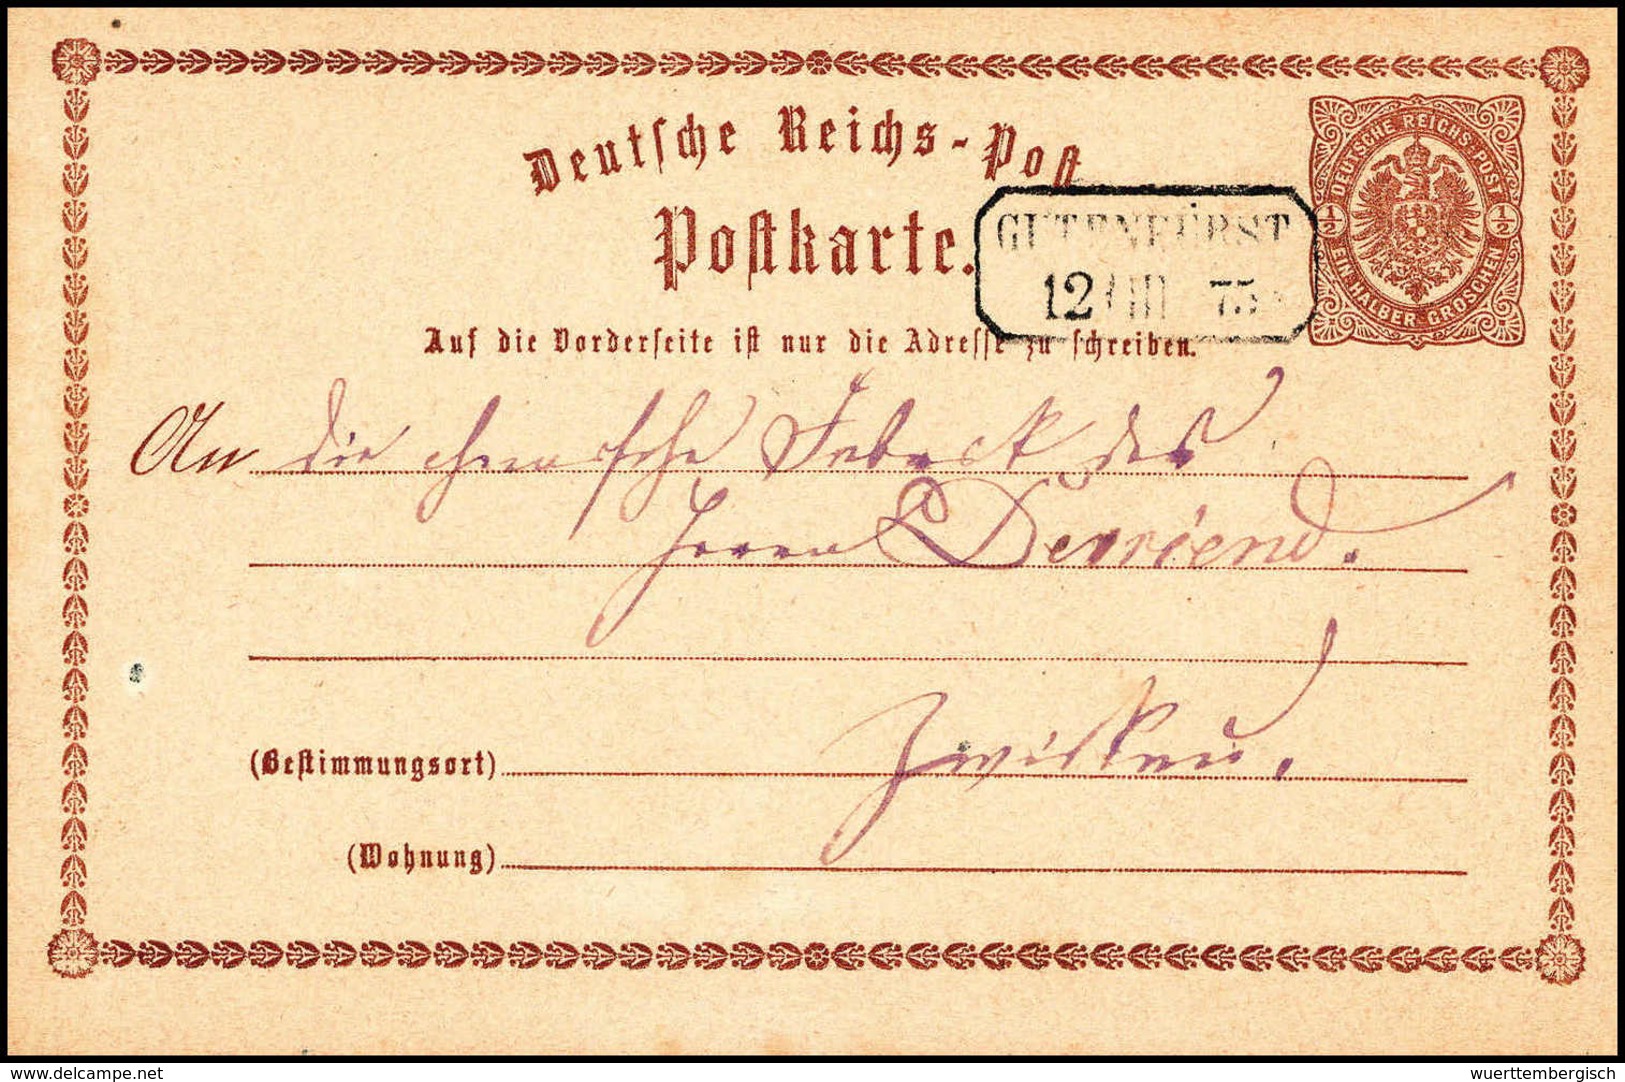 Deutsche Reichs-Post
Postkarte.
DEUTSCHE REICHS-POST
½ ½
EIN HALBER GROSCHEN
GUTENFÜRST
12 III 75
Auf die Vorderseite ist nur die Adresse zu schreiben.
An die chemische Fabrick des
Herrn Devrient.
(Bestimmungsort) Zwickau.
(Wohnung)
www.delcampe.net
wuerttembergisch